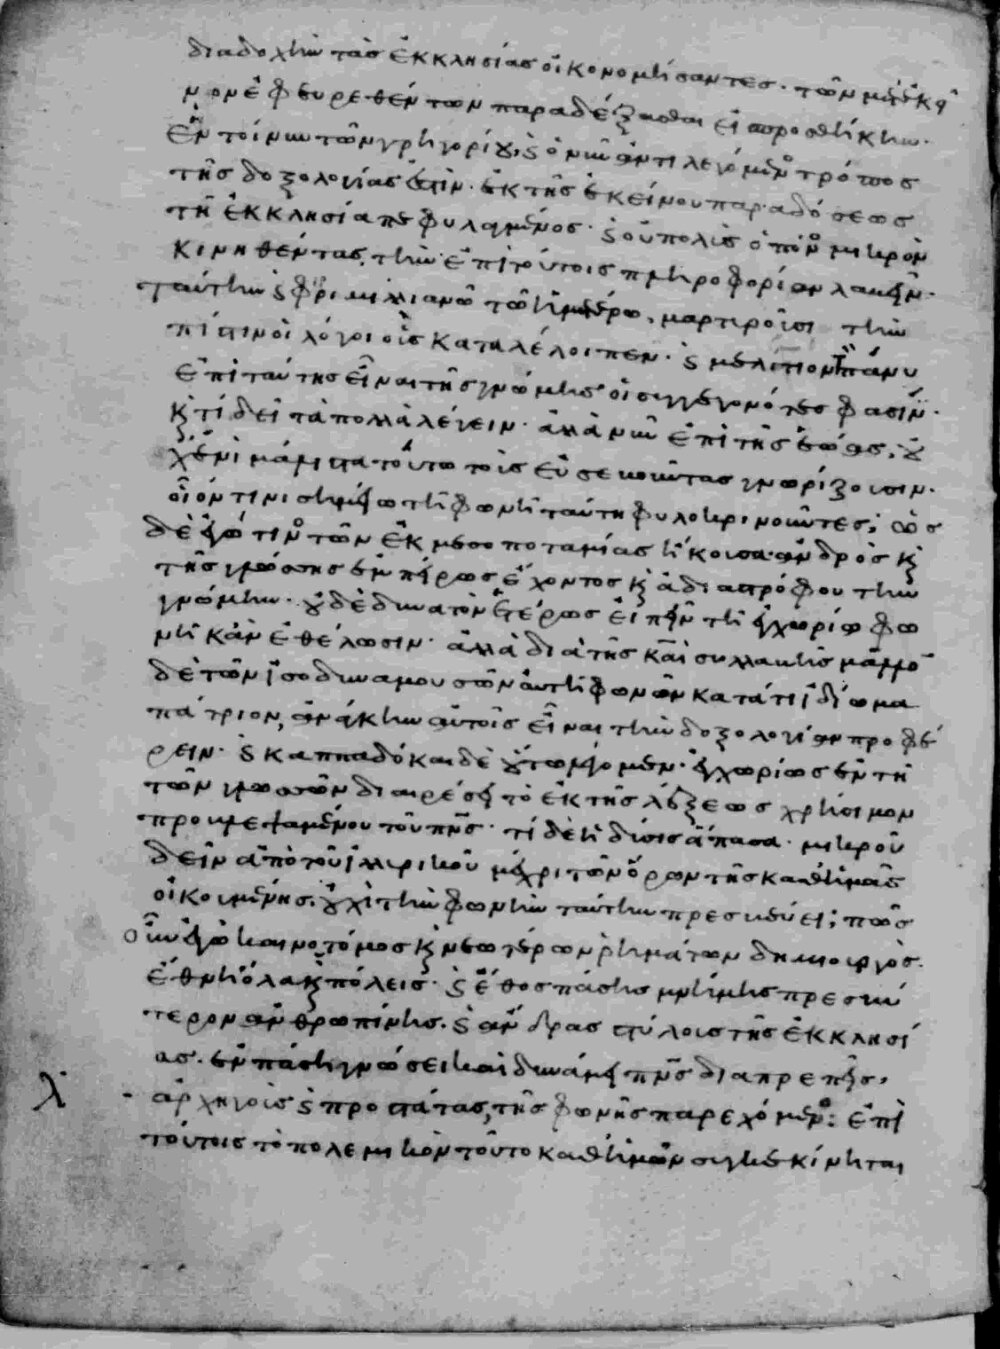 διαδοχὴν τὰς ἐκκλησίας οἰκονομήσαντες · τῶν μὲν ἐκ
μον ἐφευρεθέντων παραδέξασθαι εἰς προσθήκην ·
ἓν τοίνυν τῶν γρηγορίου, καὶ ὁ νῦν ἀντιλεγόμενος τρόπος
τῆς δοξολογίας ἐστὶν · ἐκ τῆς ἐκείνου παραδόσεως
τῇ ἐκκλησία πεφυλαγμένος · καὶ οὐ πολὺς ὁ πόνος μικρὸν
κινηθέντας, τὴν ἐπὶ τούτοις πληροφορίαν λαβεῖν ·
ταύτην καὶ φιρμιλλιανῶ τῶ ἡμετέρω, μαρτυροῦσι τὴν
πίστιν οἱ λόγοι οὓς καταλέλοιπεν · καὶ μελίτιον τὸν πάνυ
ἐπὶ ταύτης εἶναι τῆς γνώμης οἱ συγγεγονότες φασίν ·
καὶ τί δεῖ τὰ πολλὰ λέγειν · ἀλλὰ νῦν ἐπὶ τῆς ἑώας, οὐ
χ ἑνὶ μάλιστα τούτω τοὺς εὐσεβοῦντας γνωρίζουσιν ·
οἷόν τινι σημείω τῆ φωνῆ ταύτη φυλοκρινοῦντες; ὡς
δὲ ἐγώ τινος τῶν ἐκ μεσοποταμίας ἤκουσα ἀνδρὸς καὶ
τῆς γλώσσης ἐμπείρως ἔχοντος καὶ ἀδιαστρόφου τὴν
γνώμην · οὐδὲ δυνατὸν ἑτέρως εἰπεῖν τῆ ἐγχωρίω φω
νῆ κἂν ἐθέλωσιν · ἀλλὰ διὰ τῆς καὶ συλλαβῆς μᾶλλον
δὲ τῶν ἰσοδυναμουσῶν αὐτῆ φωνῶν κατά τι ἰδίωμα
πάτριον, ἀνάγκην αὐτοῖς εἶναι τὴν δοξολογίαν προφέ
ρειν · καὶ καππαδόκαι δὲ οὕτω λέγομεν · ἐγχωρίως ἐν τῆ
τῶν γλωσσῶν διαιρέσει τὸ ἐκ τῆς λέξεως χρήσιμον
προβλεψαμένου τοῦ πνς · τί δὲ ἡ δύσις ἅπασα · μικροῦ
δεῖν ἀπὸ τοῦ ἰλλυρικοῦ μέχρι τῶν ὅρων τῆς καθ ἡμᾶς
οἰκουμένης, οὐχὶ τὴν φωνὴν ταύτην πρεσβεύει; πῶς
οὖν ἐγὼ καινοτόμος καὶ νεωτέρων ῥημάτων δημιουργός ·
ἔθνη ὅλα καὶ πόλεις · καὶ ἔθος πάσης μνήμης πρεσβύ
τερον ἀνθρωπίνης · καὶ ἄνδρας στύλους τῆς ἐκκλησί
ας · ἐν πάση γνώσει καὶ δυνάμει πνς διαπρεπεῖς,
λ ἀρχηγοὺς καὶ προστάτας, τῆς φωνῆς παρεχόμενος: ἐπὶ
τούτοις τὸ πολεμικὸν τοῦτο καθ ἡμῶν συγκεκίνηται